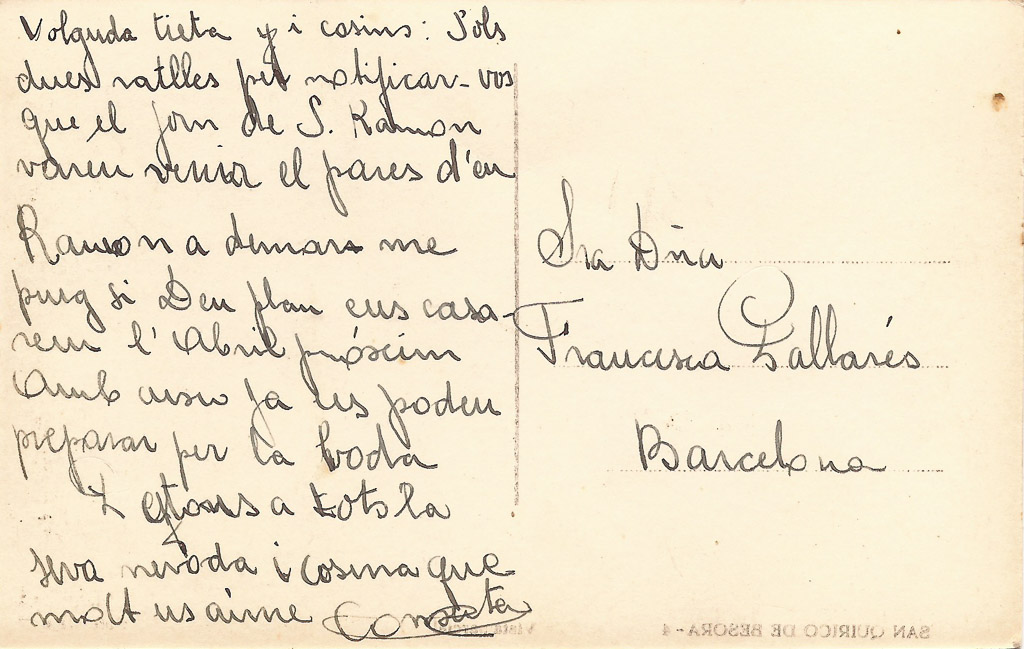 Volguda tieta y i cosins: Sols
dues ratlles per notificar-vos
que el jorn de S. Ramon
varen venir el pares d'en
Ramon a demanar me
puig si Deu plau ens casa-
rem l'Abril próscim
Amb aiso ja us poden
preparar per la boda
a tots la
seva neboda i cosina que
molt us aime
Sra Dña
Francisca Pallarés
Barcelona
SAN QUIRICO DE BESORA - 4